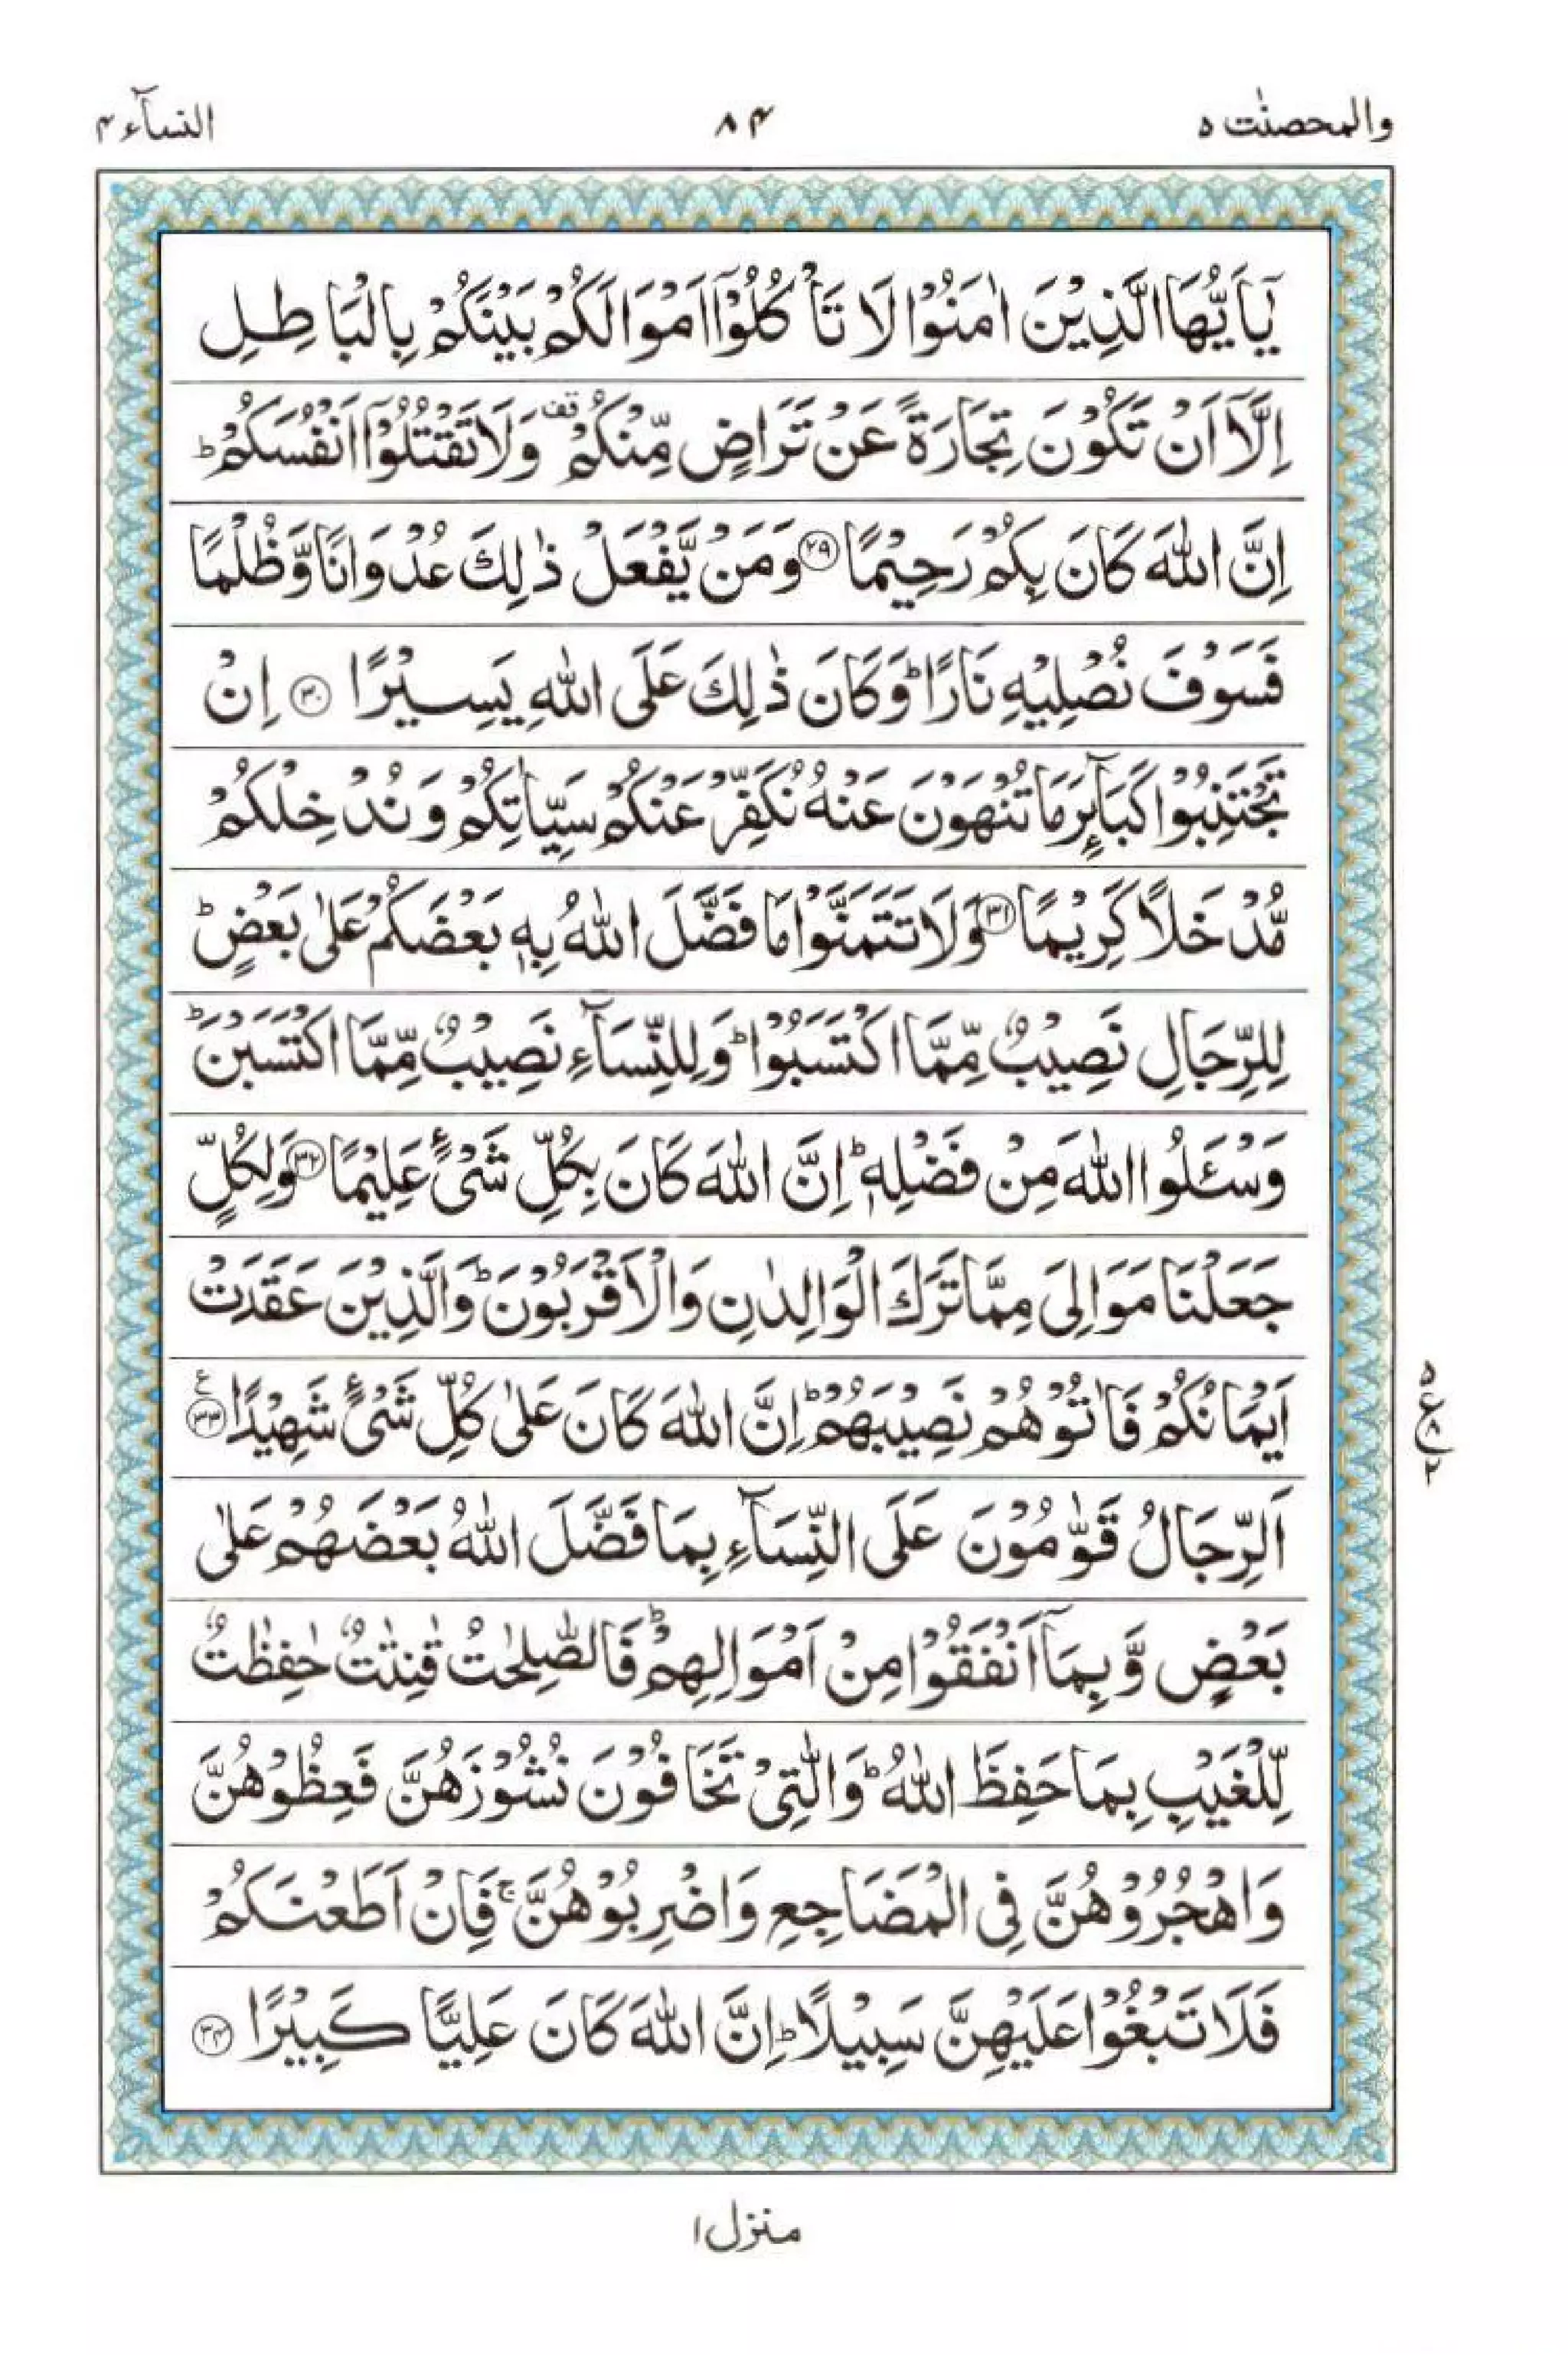 والمحصنٰت ۵
۸۴
النسآء ۴
يٰۤاَيُّهَا الَّذِيْنَ اٰمَنُوْا لَا تَاْكُلُوْۤا اَمْوَالَكُمْ بَيْنَكُمْ بِالْبَاطِلِ
اِلَّاۤ اَنْ تَكُوْنَ تِجَارَةً عَنْ تَرَاضٍ مِّنْكُمْ ۫ وَلَا تَقْتُلُوْۤا اَنْفُسَكُمْ ؕ
اِنَّ اللّٰهَ كَانَ بِكُمْ رَحِيْمًا ﴿۲۹﴾ وَمَنْ يَّفْعَلْ ذٰلِكَ عُدْوَانًا وَّظُلْمًا
فَسَوْفَ نُصْلِيْهِ نَارًا ؕ وَكَانَ ذٰلِكَ عَلَى اللّٰهِ يَسِيْرًا ﴿۳۰﴾ اِنْ
تَجْتَنِبُوْا كَبَآئِرَ مَا تُنْهَوْنَ عَنْهُ نُكَفِّرْ عَنْكُمْ سَيِّاٰتِكُمْ وَنُدْخِلْكُمْ
مُّدْخَلًا كَرِيْمًا ﴿۳۱﴾ وَلَا تَتَمَنَّوْا مَا فَضَّلَ اللّٰهُ بِهٖ بَعْضَكُمْ عَلٰى بَعْضٍ ؕ
لِلرِّجَالِ نَصِيْبٌ مِّمَّا اكْتَسَبُوْا ؕ وَلِلنِّسَآءِ نَصِيْبٌ مِّمَّا اكْتَسَبْنَ ؕ
وَسْـَٔلُوا اللّٰهَ مِنْ فَضْلِهٖ ؕ اِنَّ اللّٰهَ كَانَ بِكُلِّ شَىْءٍ عَلِيْمًا ﴿۳۲﴾ وَلِكُلٍّ
جَعَلْنَا مَوَالِىَ مِمَّا تَرَكَ الْوَالِدٰنِ وَالْاَقْرَبُوْنَ ؕ وَالَّذِيْنَ عَقَدَتْ
اَيْمَانُكُمْ فَاٰتُوْهُمْ نَصِيْبَهُمْ ؕ اِنَّ اللّٰهَ كَانَ عَلٰى كُلِّ شَىْءٍ شَهِيْدًا ﴿۳۳﴾ ع
۵ ع ۸ ۲
اَلرِّجَالُ قَوّٰمُوْنَ عَلَى النِّسَآءِ بِمَا فَضَّلَ اللّٰهُ بَعْضَهُمْ عَلٰى
بَعْضٍ وَّبِمَاۤ اَنْفَقُوْا مِنْ اَمْوَالِهِمْ ؕ فَالصّٰلِحٰتُ قٰنِتٰتٌ حٰفِظٰتٌ
لِّلْغَيْبِ بِمَا حَفِظَ اللّٰهُ ؕ وَالّٰتِىْ تَخَافُوْنَ نُشُوْزَهُنَّ فَعِظُوْهُنَّ
وَاهْجُرُوْهُنَّ فِى الْمَضَاجِعِ وَاضْرِبُوْهُنَّ ۚ فَاِنْ اَطَعْنَكُمْ
فَلَا تَبْغُوْا عَلَيْهِنَّ سَبِيْلًا ؕ اِنَّ اللّٰهَ كَانَ عَلِيًّا كَبِيْرًا ﴿۳۴﴾
منزل ۱